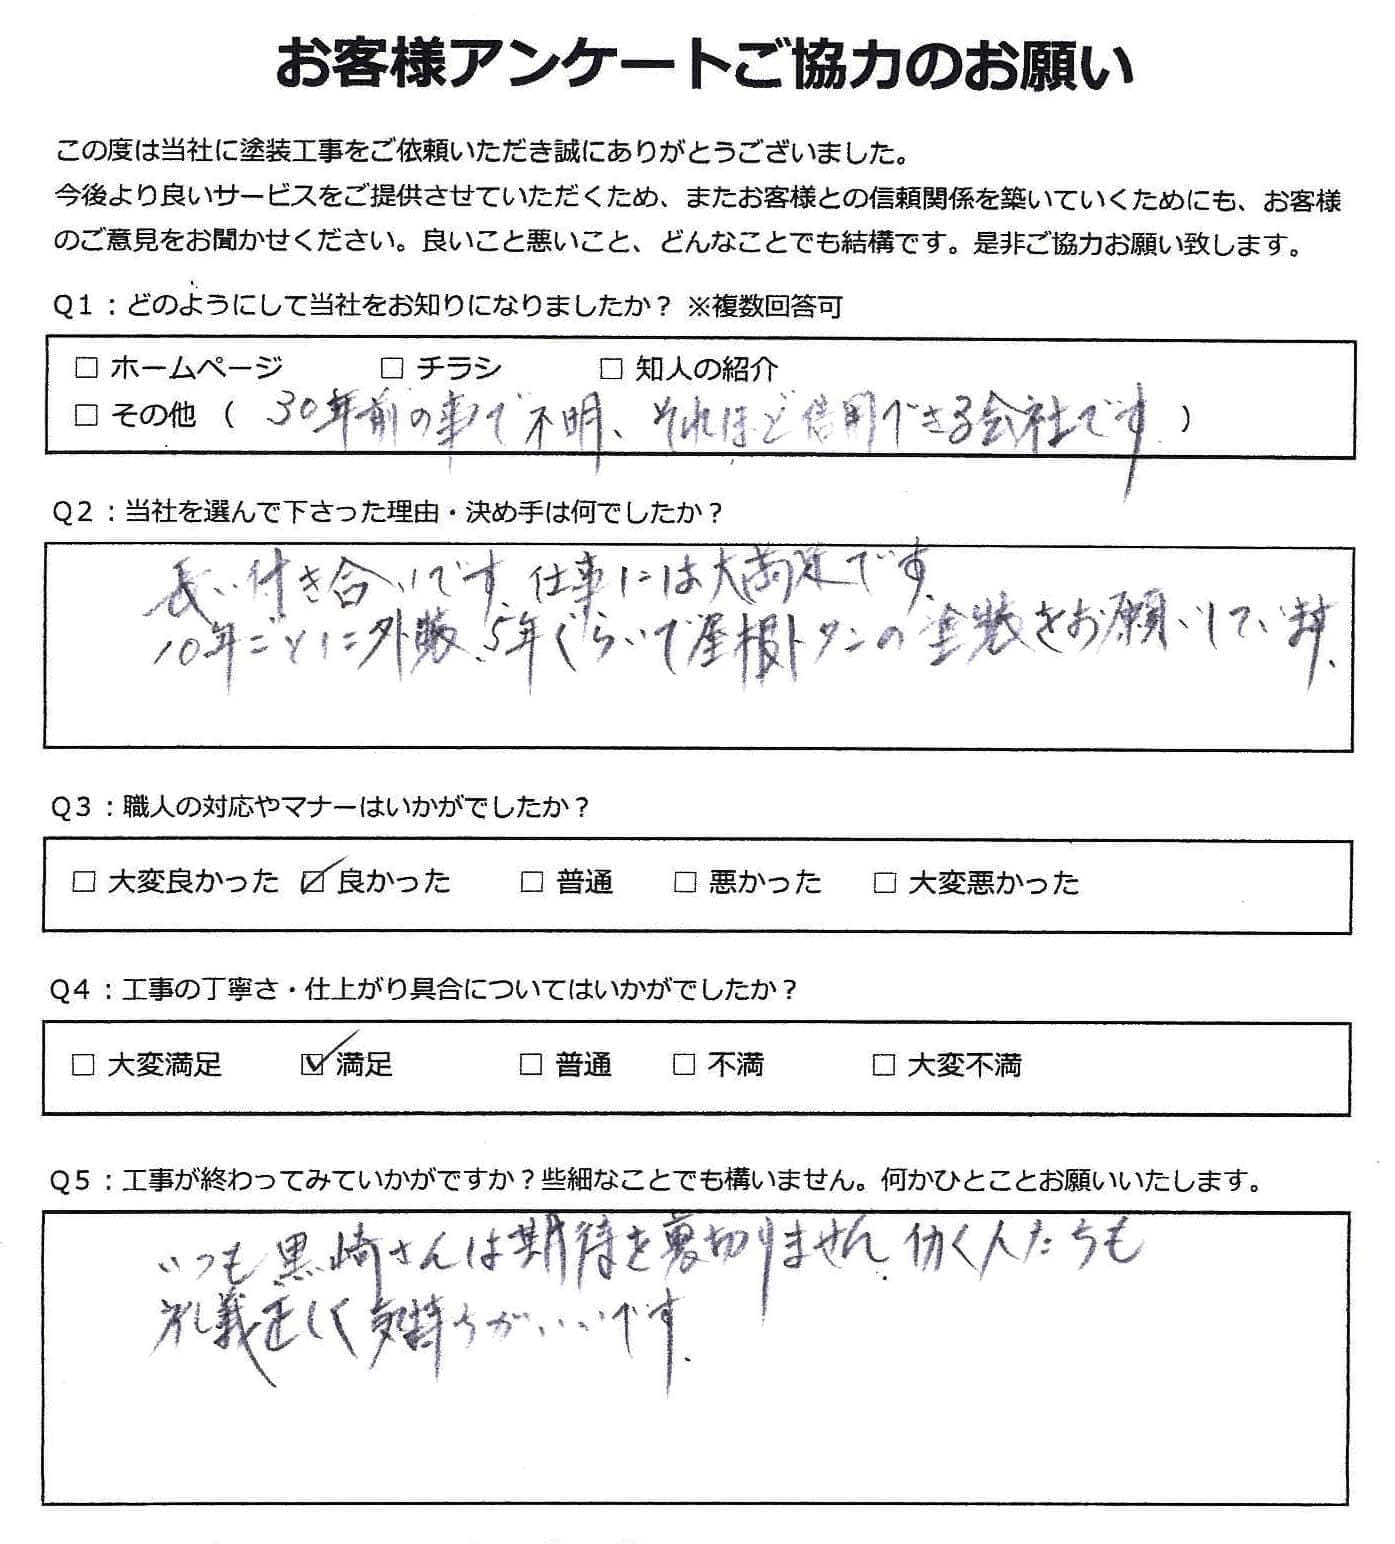 お客様アンケートご協力のお願い
この度は当社に塗装工事をご依頼いただき誠にありがとうございました。
今後より良いサービスをご提供させていただくため、またお客様との信頼関係を築いていくためにも、お客様
のご意見をお聞かせください。良いこと悪いこと、どんなことでも結構です。是非ご協力お願い致します。
Q1：どのようにして当社をお知りになりましたか？ ※複数回答可
□ ホームページ □ チラシ □ 知人の紹介
□ その他（ 30年前の事で不明、それほど信用できる会社です。）
Q2：当社を選んで下さった理由・決め手は何でしたか？
長い付き合いです。仕事には大満足です。
10年ごとに外装、5年ぐらいで屋根トタンの塗装をお願いしています。
Q3：職人の対応やマナーはいかがでしたか？
□ 大変良かった ☑ 良かった □ 普通 □ 悪かった □ 大変悪かった
Q4：工事の丁寧さ・仕上がり具合についてはいかがでしたか？
□ 大変満足 ☑ 満足 □ 普通 □ 不満 □ 大変不満
Q5：工事が終わってみていかがですか？些細なことでも構いません。何かひとことお願いいたします。
いつも黒崎さんは期待を裏切りません。働く人たちも
礼義正しく気持ちがいいです。